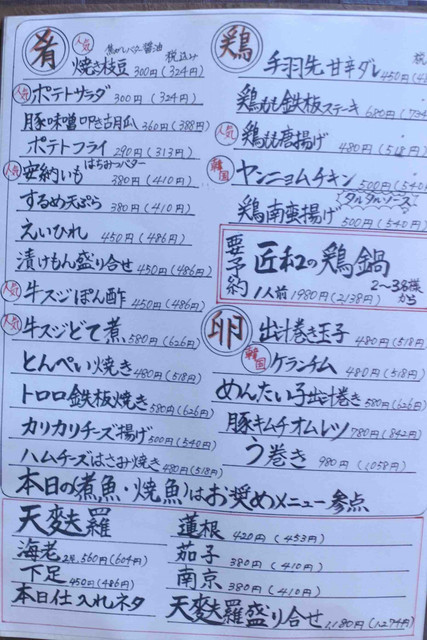 肴
人気 焦がしバター醤油 税込み
焼き枝豆 300円(324円)
人気 ポテトサラダ 300円(324円)
豚味噌叩き胡瓜 360円(388円)
ポテトフライ 290円(313円)
人気 安納いも はちみつバター 380円(410円)
するめ天ぷら 380円(410円)
えいひれ 450円(486円)
漬けもん盛り合せ 450円(486円)
人気 牛スジぽん酢 450円(486円)
人気 牛スジどて煮 580円(626円)
とんぺい焼き 480円(518円)
トロロ鉄板焼き 580円(626円)
カリカリチーズ揚げ 500円(540円)
ハムチーズはさみ焼き 480円(518円)
鶏
手羽先 甘辛ダレ 450円
鶏もも鉄板ステーキ 680円
人気 鶏もも唐揚げ 480円(518円)
韓国 ヤンニョムチキン 500円(540
タルタルソース
鶏南蛮揚げ 500円(540円)
要予約 匠和の鶏鍋
1人前 1980円(2138円) 2〜3名様から
卵
出汁巻き玉子 480円(518円)
韓国 ケランチム 480円(518円)
めんたい子出汁巻き 580円(626円)
豚キムチオムレツ 780円(842円)
う巻き 980円(1058円)
本日の(煮魚・焼魚)はお奨めメニュー参照
天麩羅
海老 2本,560円(604円)
下足 450円(486円)
本日仕入れネタ
蓮根 420円(453円)
茄子 380円(410円)
南京 380円(410円)
天麩羅盛り合せ 1,180円(1,274円)